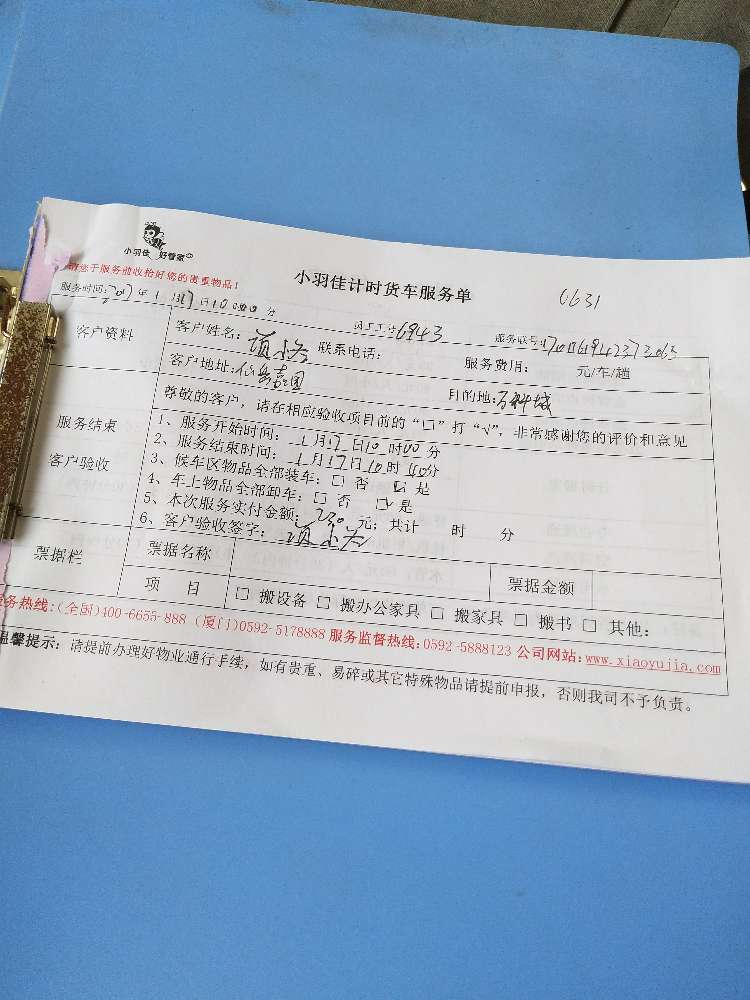 小羽佳 好管家
请您于服务前收拾好您的贵重物品！
小羽佳计时货车服务单
0631
服务时间：2017年1月17日10时00分
6943
服务联号:
客户资料
客户姓名：
联系电话：
服务费用：
元/车/趟
客户地址：仙岳嘉园
目的地：万科城
服务结束
客户验收
尊敬的客户，请在相应验收项目前的“□”打“√”，非常感谢您的评价和意见
1、服务开始时间：1月17日10时00分
2、服务结束时间：1月17日10时40分
3、候车区物品全部装车：□ 否 ☑ 是
4、车上物品全部卸车：□ 否 ☑ 是
5、本次服务实付金额：230元；共计 时 分
6、客户验收签字：
票据栏
票据名称
票据金额
项 目
□ 搬设备 □ 搬办公家具 □ 搬家具 □ 搬书 □ 其他：
务热线:(全国)400-6655-888 (厦门)0592-5178888 服务监督热线:0592-5888123 公司网站:www.xiaoyujia.com
温馨提示：请提前办理好物业通行手续，如有贵重、易碎或其它特殊物品请提前申报，否则我司不予负责。